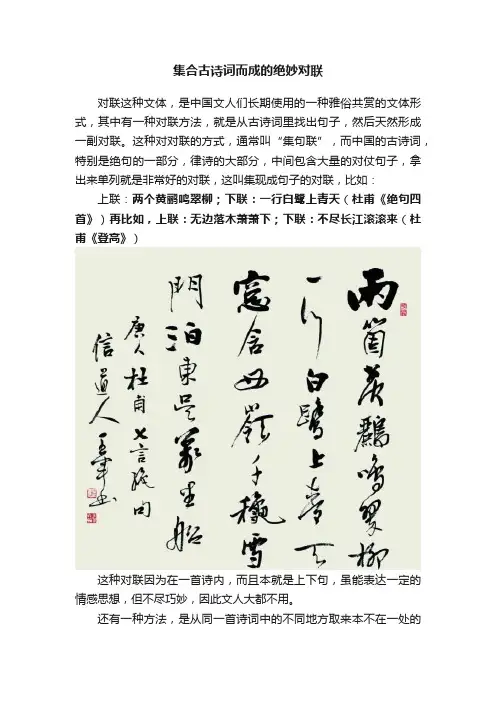 集合古诗词而成的绝妙对联
对联这种文体，是中国文人们长期使用的一种雅俗共赏的文体形
式，其中有一种对联方法，就是从古诗词里找出句子，然后天然形成
一副对联。这种对对联的方式，通常叫“集句联”，而中国的古诗词，
特别是绝句的一部分，律诗的大部分，中间包含大量的对仗句子，拿
出来单列就是非常好的对联，这叫集现成句子的对联，比如：
上联：两个黄鹂鸣翠柳；下联：一行白鹭上青天（杜甫《绝句四
首》）再比如，上联：无边落木萧萧下；下联：不尽长江滚滚来（杜
甫《登高》）
兩箇黃鸝鳴翠柳
一行白鷺上青天
窓含西嶺千穐雪
門泊東吳萬里船
唐人杜甫七言絕句
信道人
这种对联因为在一首诗内，而且本就是上下句，虽能表达一定的
情感思想，但不尽巧妙，因此文人大都不用。
还有一种方法，是从同一首诗词中的不同地方取来本不在一处的